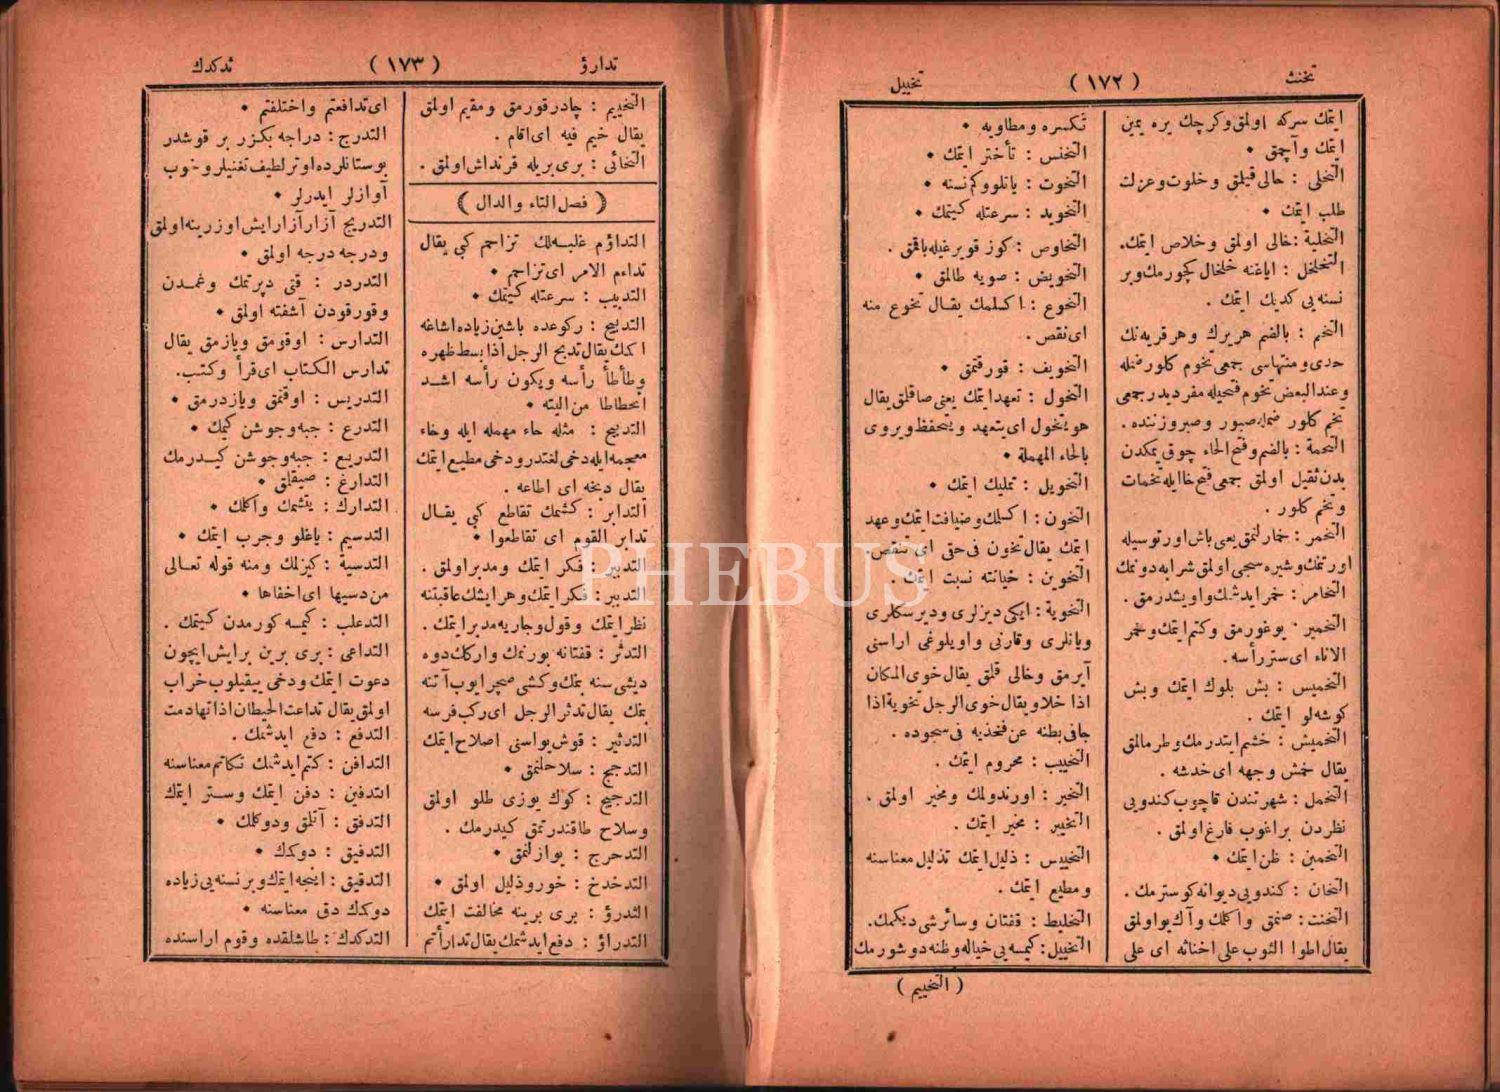 تخنث ( ١٧٢ ) تخييل
ايتك سركه اولمق وكرچك يره يمين
ايتك وآچمق •
التخلى : حالى قيلمق وخلوت وعزلت
طلب ايتك •
التخلية : خالى اولمق وخلاص ايتك .
التخلخل : اياغنه خلخال كچورمك وبر
نسنه يى كديك ايتك .
التخم : بالضم هريرك وهر قريه نك
حدى ومنتهاسى جمعى تخوم كلور ضمله
وعند البعض تخوم فتحيله مفرديدر جمعى
تخم كلور ضمله صبور وصبر وزننده .
التخمة : بالضم وفتح الخاء چوق يمكدن
بدن ثقيل اولمق جمعى فتح خا ايله تخمات
وتخم كلور .
التخمر : خمارلنمق يعنى باش اورتوسيله
اورتمك وشيره سجى اولمق شرابه دونمك
التخامر : خمر ايدشمك واويشدرمق .
التخمير : يوغورمق وكتم ايتك وخمر
الاناء اى ستر رأسه .
التخميس : بش بلوك ايتك وبش
كوشه لو ايتك .
التخميش : خشم ايتدرمك وطرمالمق
يقال خمش وجهه اى خدشه .
التخمل : شهرتندن قاچوب كندويى
نظردن براغوب فارغ اولمق .
التخمين : ظن ايتك •
التخان : كندويى ديوانه كوسترمك .
التخنث : صنمق واكلمك وآك يو اولمق
يقال اطوا الثوب على اخناثه اى على
تكسره ومطاويه •
التخنس : تأختر ايتك •
التخوت : ياتلو وكم نسنه •
التخويد : سرعتله كيتمك •
التخاوص : كوز قويرغيله باقمق .
التخويض : صويه طالمق •
التخوع : اكسلمك يقال تخوع منه
اى نقص .
التخويف : قورقتمق •
التخول : تعهد ايتك يعنى صاقلمق يقال
هو يتخول اى يتعهد ويتحفظ ويروى
بالحاء المهملة •
التخويل : تمليك ايتك •
التخون : اكسلمك وضيافت ايتك وعهد
ايتك يقال تخون فى حق اى تنقص .
التخوين : خيانته نسبت ايتك .
التخوية : ايكى ديزلرى وديرسكلرى
ويانلرى وقارنى واويلوغى اراسنى
آيرمق وخالى قلمق يقال خوى المكان
اذا خلا ويقال خوى الرجل تخوية اذا
جافى بطنه عن فخذيه فى سجوده .
التخييب : محروم ايتك .
التخير : اورندولمك ومخير اولمق .
التخيير : مخير ايتك .
التخييس : ذليل ايتك تذليل معناسنه
ومطيع ايتك .
التخليط : قفتان وسائر شى ديكمك .
التخييل : كيمسه يى خياله وظنه دوشورمك
( التخييم )
تدارؤ ( ١٧٣ ) تدكدك
التخييم : چادر قورمق ومقيم اولمق
يقال خيم فيه اى اقام .
التخائى : برى بريله قرنداش اولمق .
( فصل التاء والدال )
التداؤم غلبه لك تزاحم كبى يقال
تداءم الامر اى تزاحم •
التدبيب : سرعتله كيتمك •
التدبيح : ركوعده باشين زياده اشاغه
اكمك يقال تدبح الرجل اذا بسط ظهره
وطأطأ رأسه ويكون رأسه اشد
انحطاطا من اليته •
التدبيخ : مثله حاء مهمله ايله وخاء
معجمه ايله دخى لغتدر ودخى مطيع ايتك
يقال دبخه اى اطاعه .
التدابر : كشمك تقاطع كبى يقال
تدابر القوم اى تقاطعوا •
التدبر : فكر ايتك ومدبر اولمق .
التدبير : فكر ايتك وهر ايشك عاقبتنه
نظر ايتك وقول وجاريه مدبر ايتك .
التدثر : قفتانه بورنمك واركك دوه
ديشى سنه بتمك وكشى صچرايوب آتنه
بتمك يقال تدثر الرجل اى ركب فرسه
التدثير : قوش يواسنى اصلاح ايتك
التدجج : سلاحلنمق •
التدجيج : كوك يوزى طلو اولمق
وسلاح طاقندرتمق كيدرمك .
التدحرج : يوارلنمق •
التدخدخ : خور وذليل اولمق •
التدرؤ : برى برينه مخالفت ايتك
التدراؤ : دفع ايدشمك يقال تدارأتم
اى تدافعتم واختلفتم •
التدرج : دراجه بكزر بر قوشدر
بوستانلرده اوتر لطيف تغنيلر وخوب
آوازلر ايدرلر •
التدريج آزار آزار ايش اوزرينه اولمق
ودرجه درجه اولمق •
التدردر : قتى دپرتمك وغمدن
وقورقودن آشفته اولمق •
التدارس : اوقومق ويازمق يقال
تدارس الكتاب اى قرأ وكتب .
التدريس : اوقتمق ويازدرمق •
التدرع : جبه وجوشن كيمك •
التدريع : جبه وجوشن كيدرمك
التدارغ : صيقلق •
التدارك : يتشمك واكلمك •
التدسيم : ياغلو وجرب ايتك •
التدسية : كيزلمك ومنه قوله تعالى
من دسيها اى اخفاها •
التدعلب : كيمسه كورمدن كيتمك .
التداعى : برى برين برايش ايچون
دعوت ايتمك ودخى ييقيلوب خراب
اولمق يقال تداعت الحيطان اذا تهادمت
التدفع : دفع ايدشمك .
التدافن : كتم ايدشمك تكاتم معناسنه
التدفين : دفن ايتك وستر ايتك
التدفق : آتلق ودوكلمك •
التدفيق : دوكمك •
التدقيق : اينجه ايتك وبر نسنه يى زياده
دوكمك دق معناسنه •
التدكدك : طاشلقده وقوم اراسنده
PHEBUS